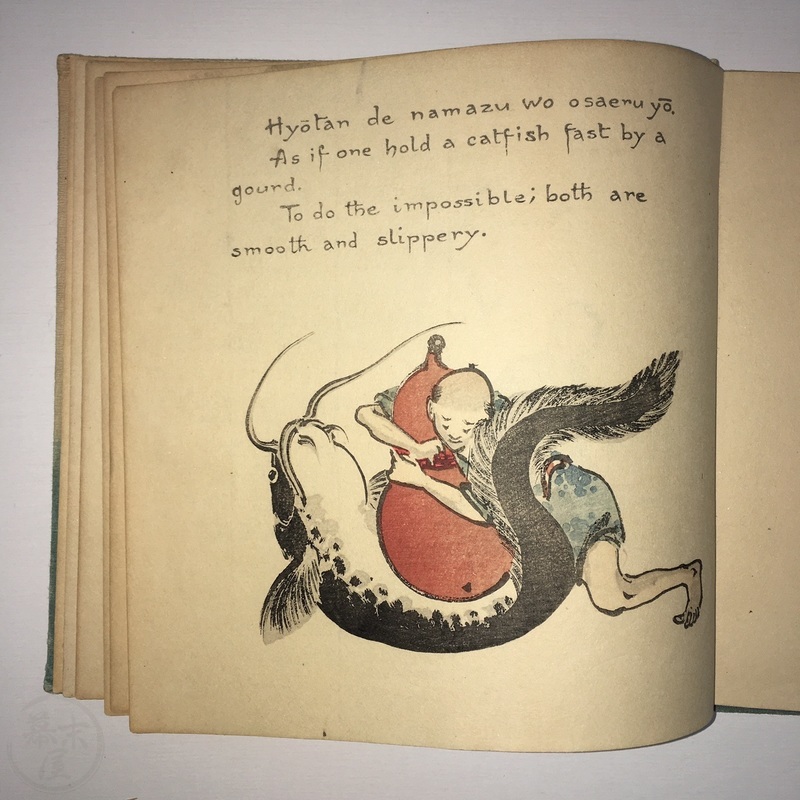 Hyōtan de namazu wo osaeru yō.
As if one hold a catfish fast by a
gourd.
To do the impossible; both are
smooth and slippery.
幕末屋